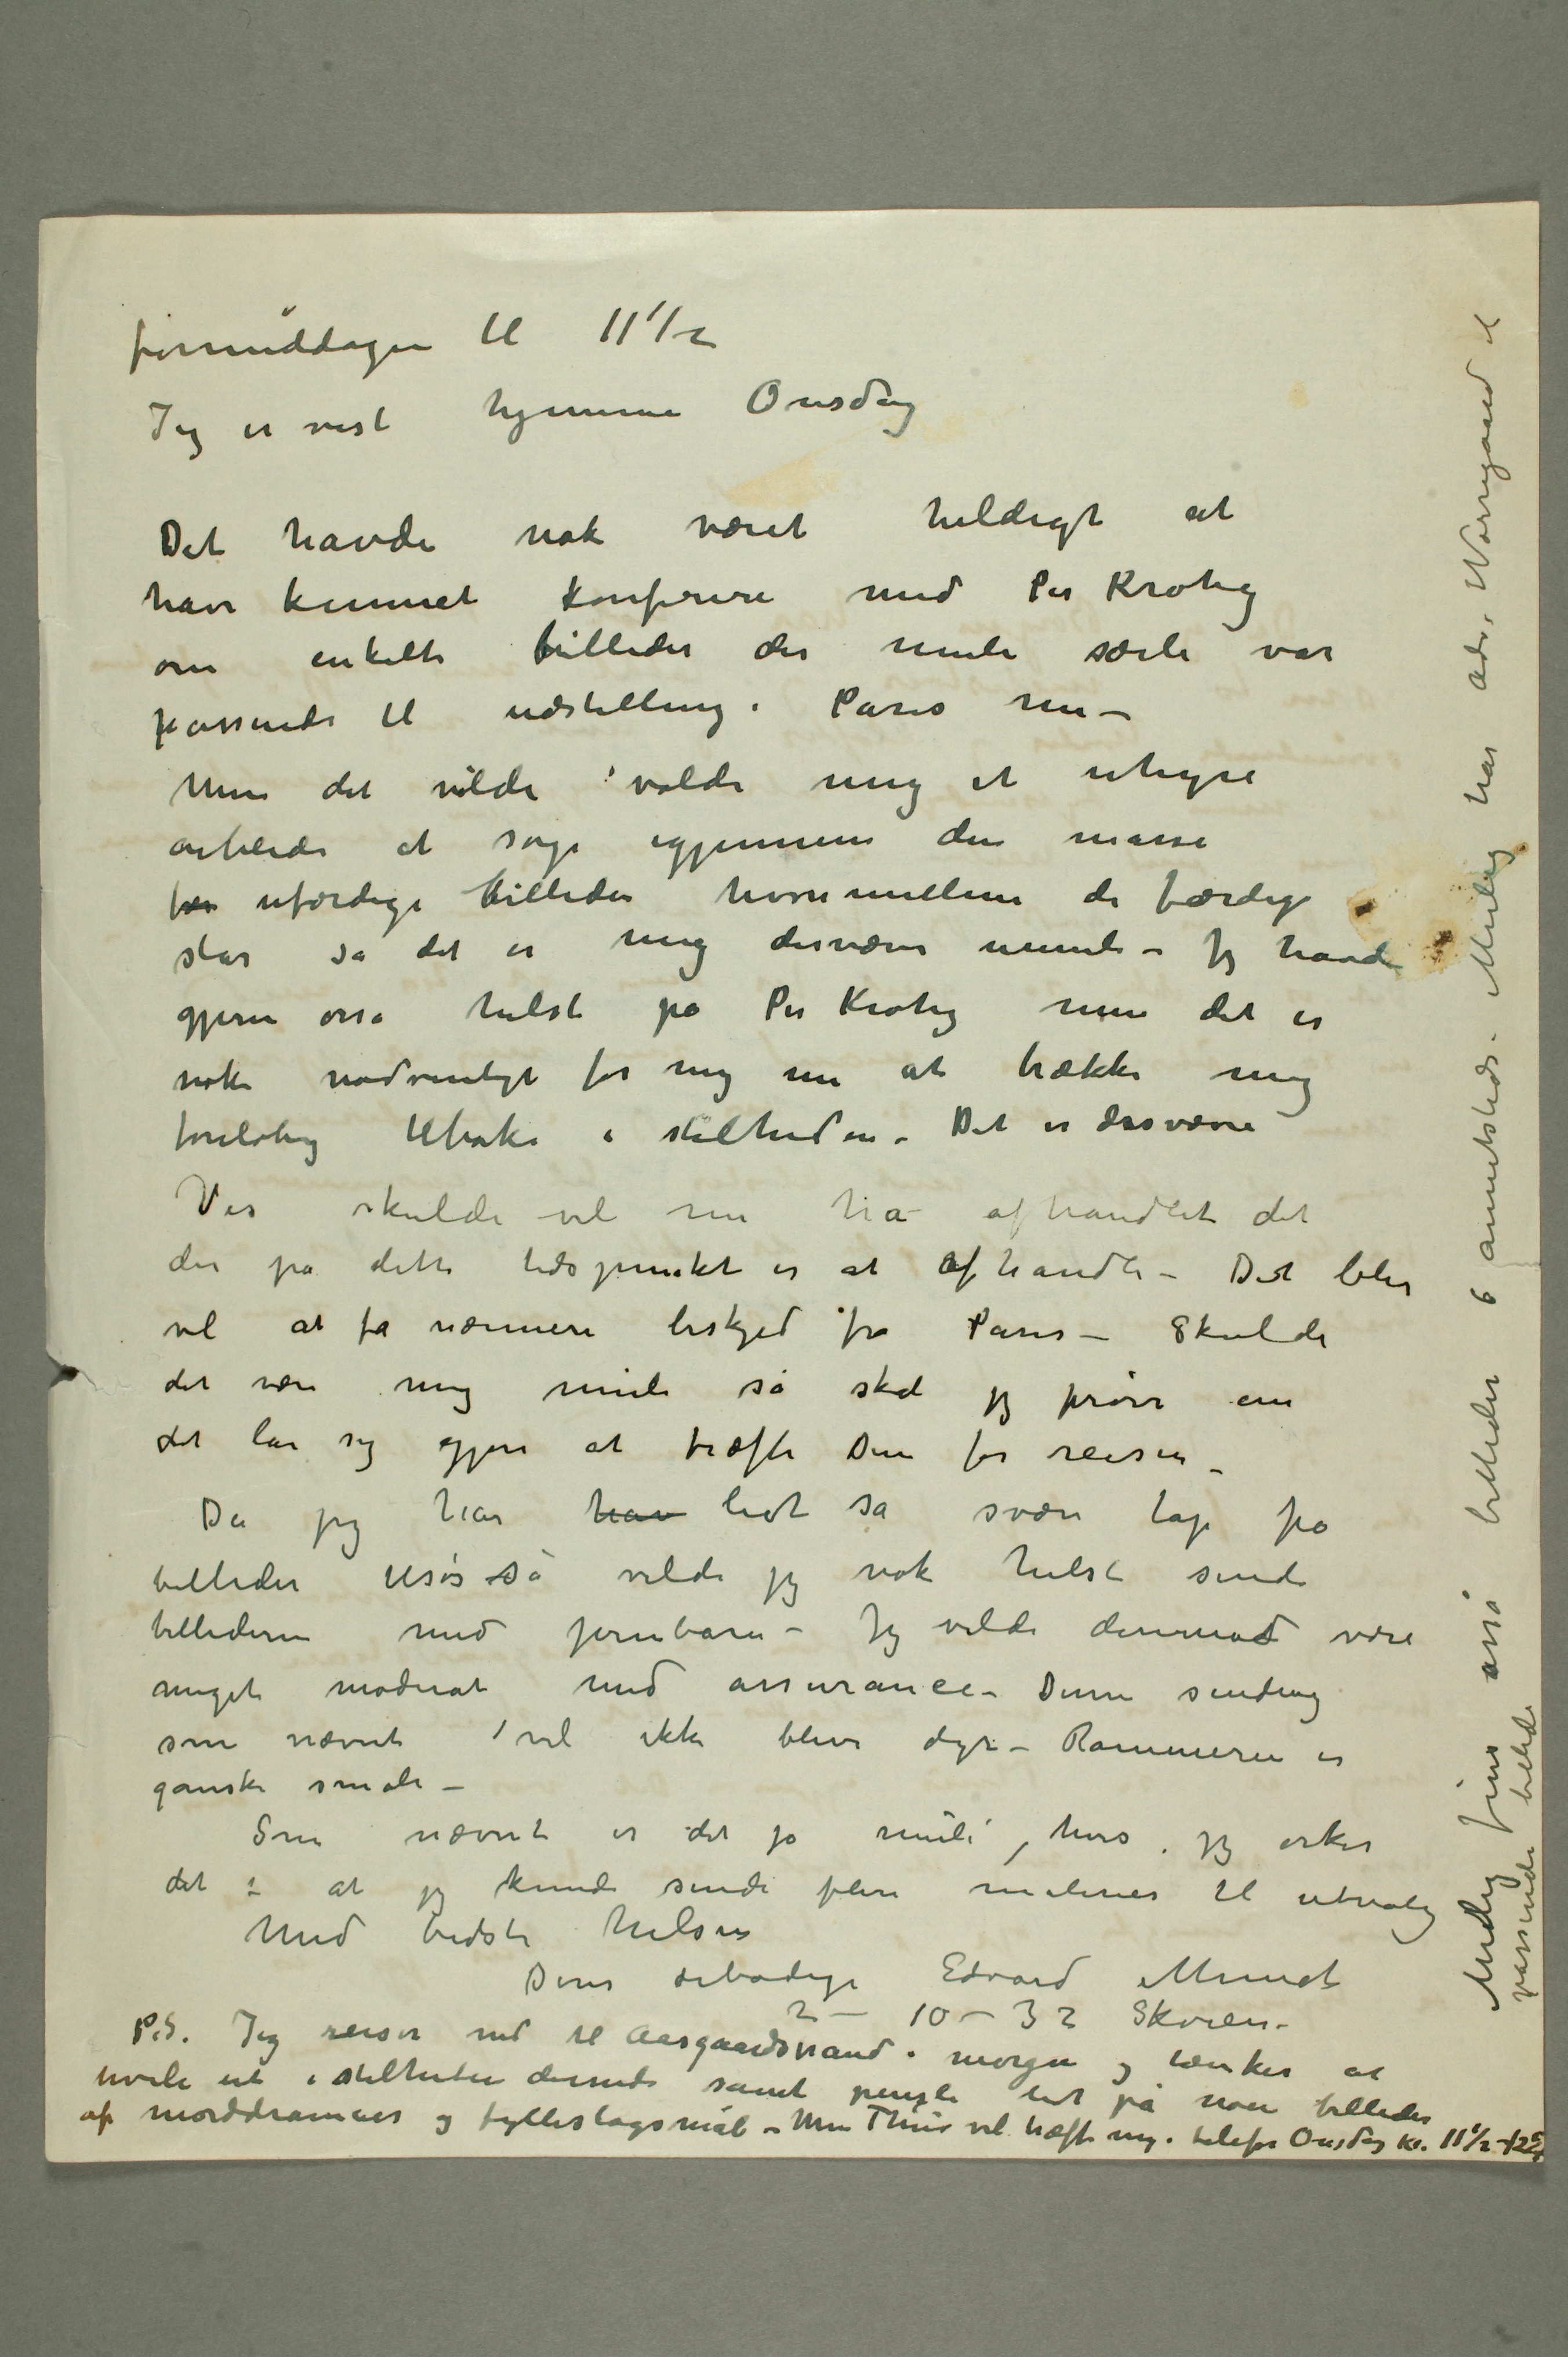 formiddagen til 11 1/2
Jeg er vist hjemme Onsdag
Det havde nok været heldigt at
have kunnet konferere med Per Krohg
om enkelte billeder der muli særli var
passende til udstilling i Paris nu –
Men det vilde volde mig et uhyre
arbeide at søge igjennem den masse
uferdige billeder hvorimellem de færdige
står så det er mig desværre umuli – Jeg havde
gjerne osså hilst på Per Krohg men det er
nok nødvenligt for mig nu at trække mig
foreløbig tilbake i stilheden – Det er desværre
Vi skulde vel nu ha afhandlet det
der på dette tidspunkt er at afhandle – Det blir
vel at få nærmere beskjed fra Paris – Skulde
det være mig muli så skal jeg prøve om
det lar sig gjøre at træffe Dem før reisen –
Da jeg har hav lidt så svære tap på
billeder tilsøs så vilde jeg nok helst sende
billederne med jernbane – Jeg vilde derimod være
meget moderat med assurance – Denne sending
som nævnt vil ikke blive dyr – Rammerne er
ganske smale –
Som nævnt er det jo muli, hvis jeg orker
det : at jeg kunde sende flere malerier til utvalg
Med bedste hilsen
Deres ærbødige Edvard Munch
2 – 10 – 32 Skøien –
P.S. Jeg reiser ned til Aasgaardstrand i morgen og tænker at
hvile ut i stilheten dernede samt pensle lidt på noen billeder
af morddramaer og fylleslagsmål – Men Thiis vil træffe mig i telefon Onsdag kl. 11 1/2 – 12
Muli fins osså billeder 6 annetsteds – Muli har adv. Nørregaard et
passende billede